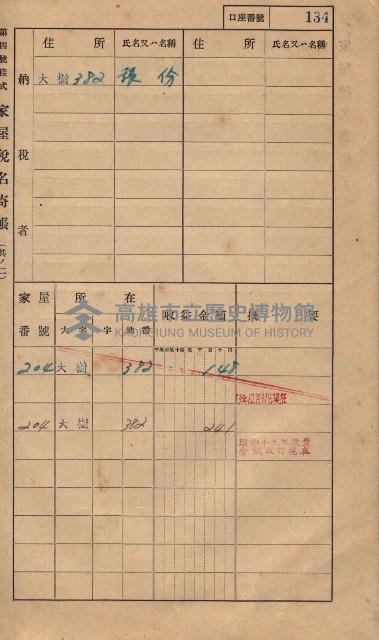 口座番號 134
第四號樣式 家屋稅名寄帳（其ノ一）
納稅者
住所 氏名又ハ名稱 住所 氏名又ハ名稱
大樹 382 張份
家屋番號 所在 收益金額 摘要
大字 字 地番
204 大樹 382 148
204 大樹 382 241
高雄市立歷史博物館
KAOHSIUNG MUSEUM OF HISTORY